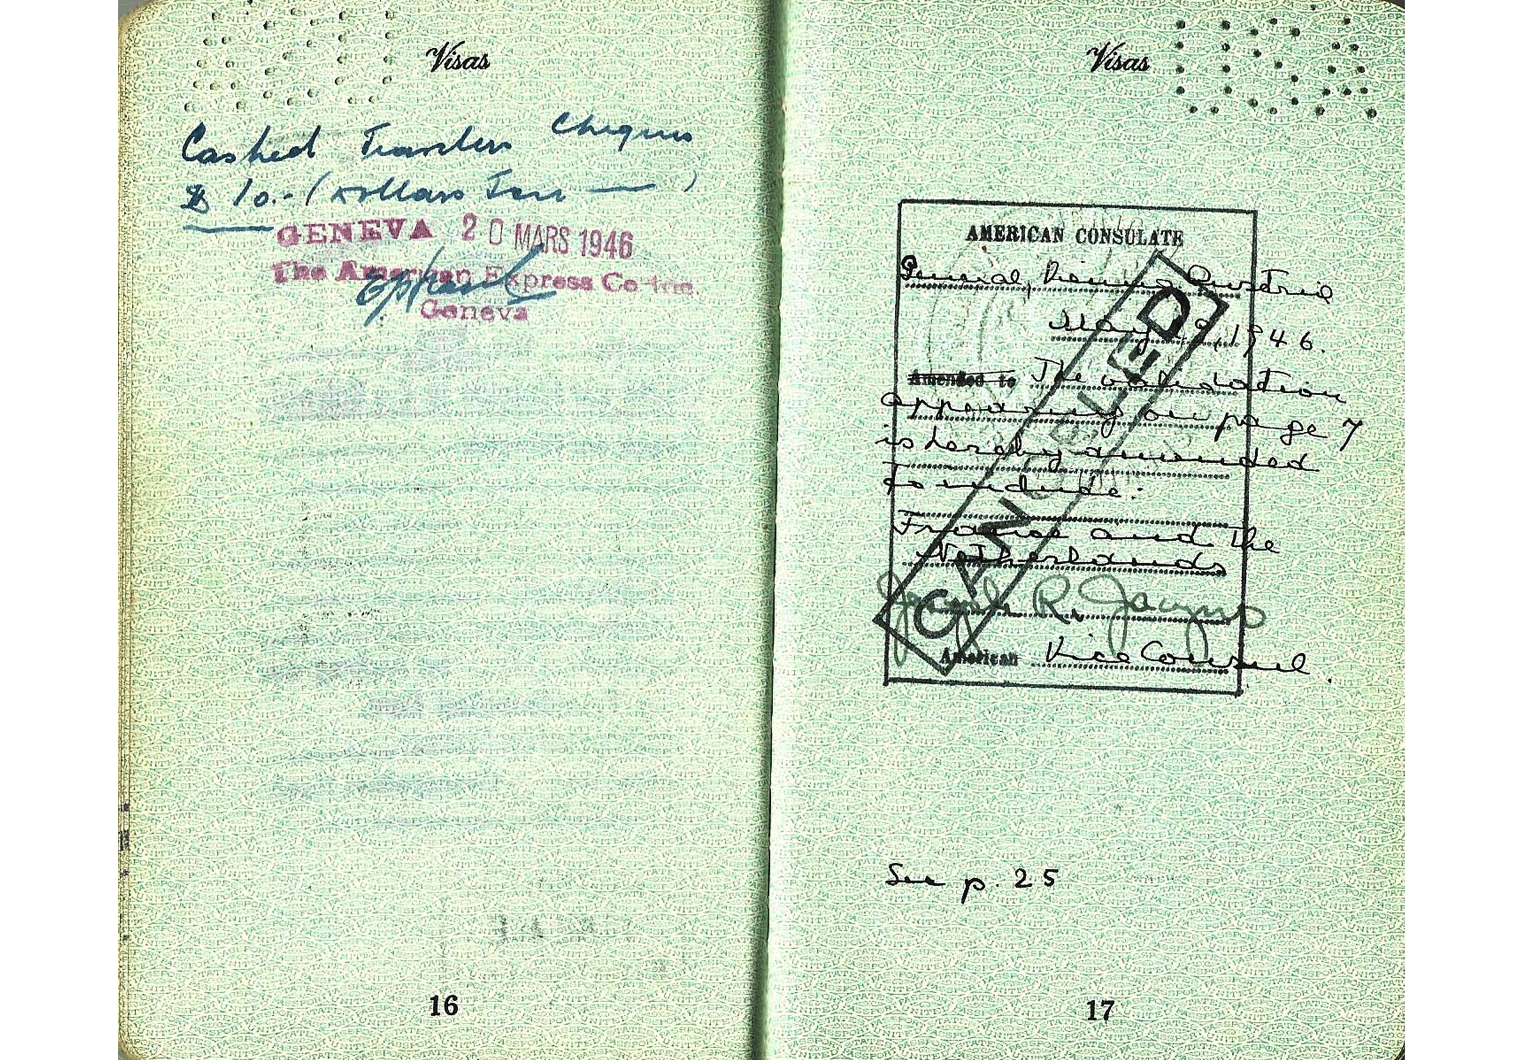 Visas
Cashed Travelers Cheques
$ 10.- (Dollars Ten — )
GENEVA 20 MARS 1946
The American Express Co. Inc.
Geneva
16
Visas
AMERICAN CONSULATE
General, Vienna Austria
May 19, 1946.
Amended to The validation
appearing on page 7
is hereby amended
to include:
France and the
Netherlands
Joseph R. Jacyno
American Vice Consul.
CANCELED
See p. 25
17